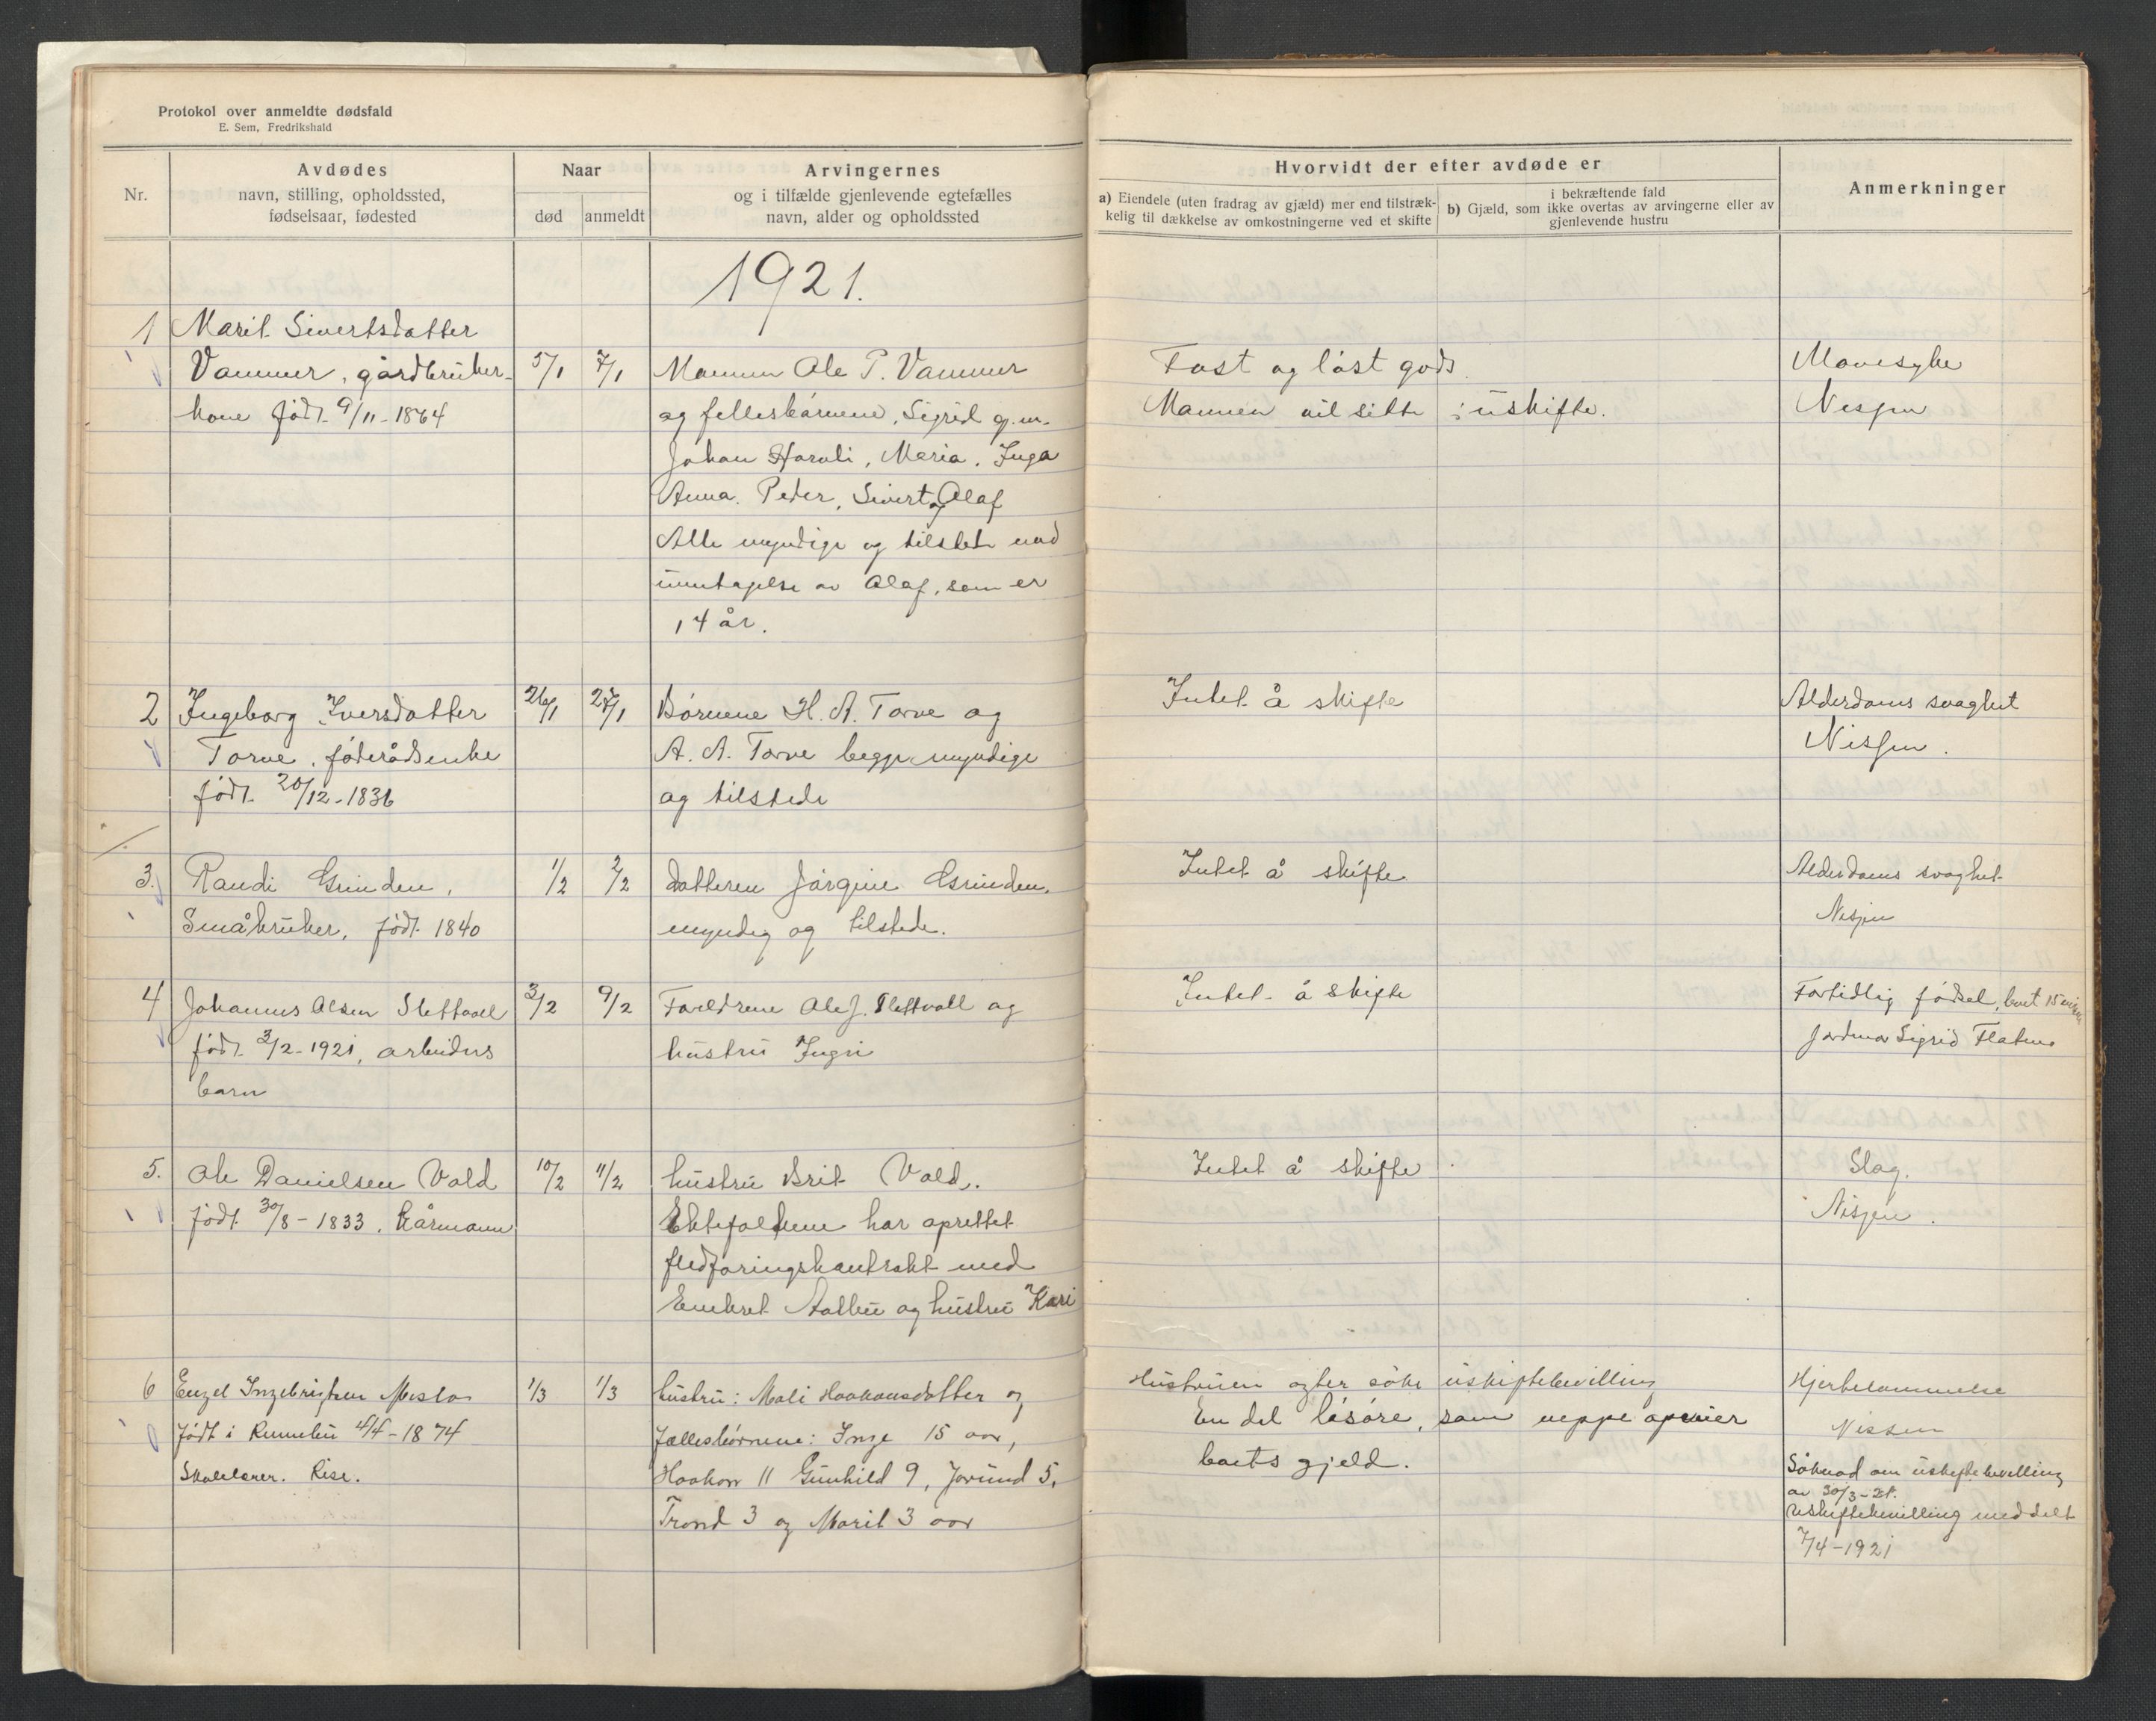 Protokol over anmeldte dødsfald
E. Sem, Fredrikshald
Nr.
Avdødes
navn, stilling, opholdssted,
fødselsaar, fødested
Naar
død
anmeldt
Arvingernes
og i tilfælde gjenlevende egtefælles
navn, alder og opholdssted
Hvorvidt der efter avdøde er
a) Eiendele (uten fradrag av gjæld) mer end tilstræk-
kelig til dækkelse av omkostningerne ved et skifte
i bekræftende fald
b) Gjæld, som ikke overtas av arvingerne eller av
gjenlevende hustru
Anmerkninger
1921.
1 Marit Sivertsdatter
Vammer, gårdbruker-
kone født 9/11-1864
5/1 7/1
Mannen Ole P. Vammer
og fellesbarnene, Sigrid g. m.
Johan Harali, Maria, Inga
Anna, Peder, Sivert og Olaf
Alle myndige og tilstede med
unntagelse av Olaf, som er
14 år.
Fast og løst gods.
Mannen vil sitte i uskifte.
Mavesyke
Nisjen
2 Ingeborg Iversdatter
Torve, føderådsenke
født 20/12-1836
26/1 27/1
Børnene H. A. Torve og
A. A. Torve begge myndige
og tilstede
Intet å skifte
Alderdoms svaghet
Nisjen.
3. Randi Grinden,
Småbruker, født 1840
1/2 2/2
datteren Jørgine Grinden,
myndig og tilstede.
Intet å skifte
Alderdoms svaghet
Nisjen
4 Johannes Olsen Slettvoll
født 3/2-1921, arbeiders
barn
3/2 9/2
Foreldrene Ole J. Slettvoll og
hustru Ingri
Intet å skifte
Fortidlig fødsel, levet 15
Jordmor Sigrid Flatmo
5. Ole Danielsen Vold
født 30/8-1833, kårmann
10/2 11/2
hustru Brit Vold.
Ektefolkene har oprettet
fledføringskontrakt med
Embret Aalbu og hustru Kari
Intet å skifte.
Slag.
Nisjen.
6 Engel Ingebrigtsen Meslo
født i Rennebu 4/4-1874
Skolelærer. Rise.
1/3 1/3
hustru: Mali Haakonsdatter og
fællesbørnene: Inge 15 aar,
Haakon 11 Gunhild 9, Jorund 5,
Trond 3 og Marit 3 aar
Hustruen agter søke uskiftebevilling
En del løsøre, som neppe opveier
boets gjeld.
Hjertelammelse
Nissen
Søknad om uskiftebevilling
av 30/3-21.
Uskiftebevilling meddelt
7/4-1921